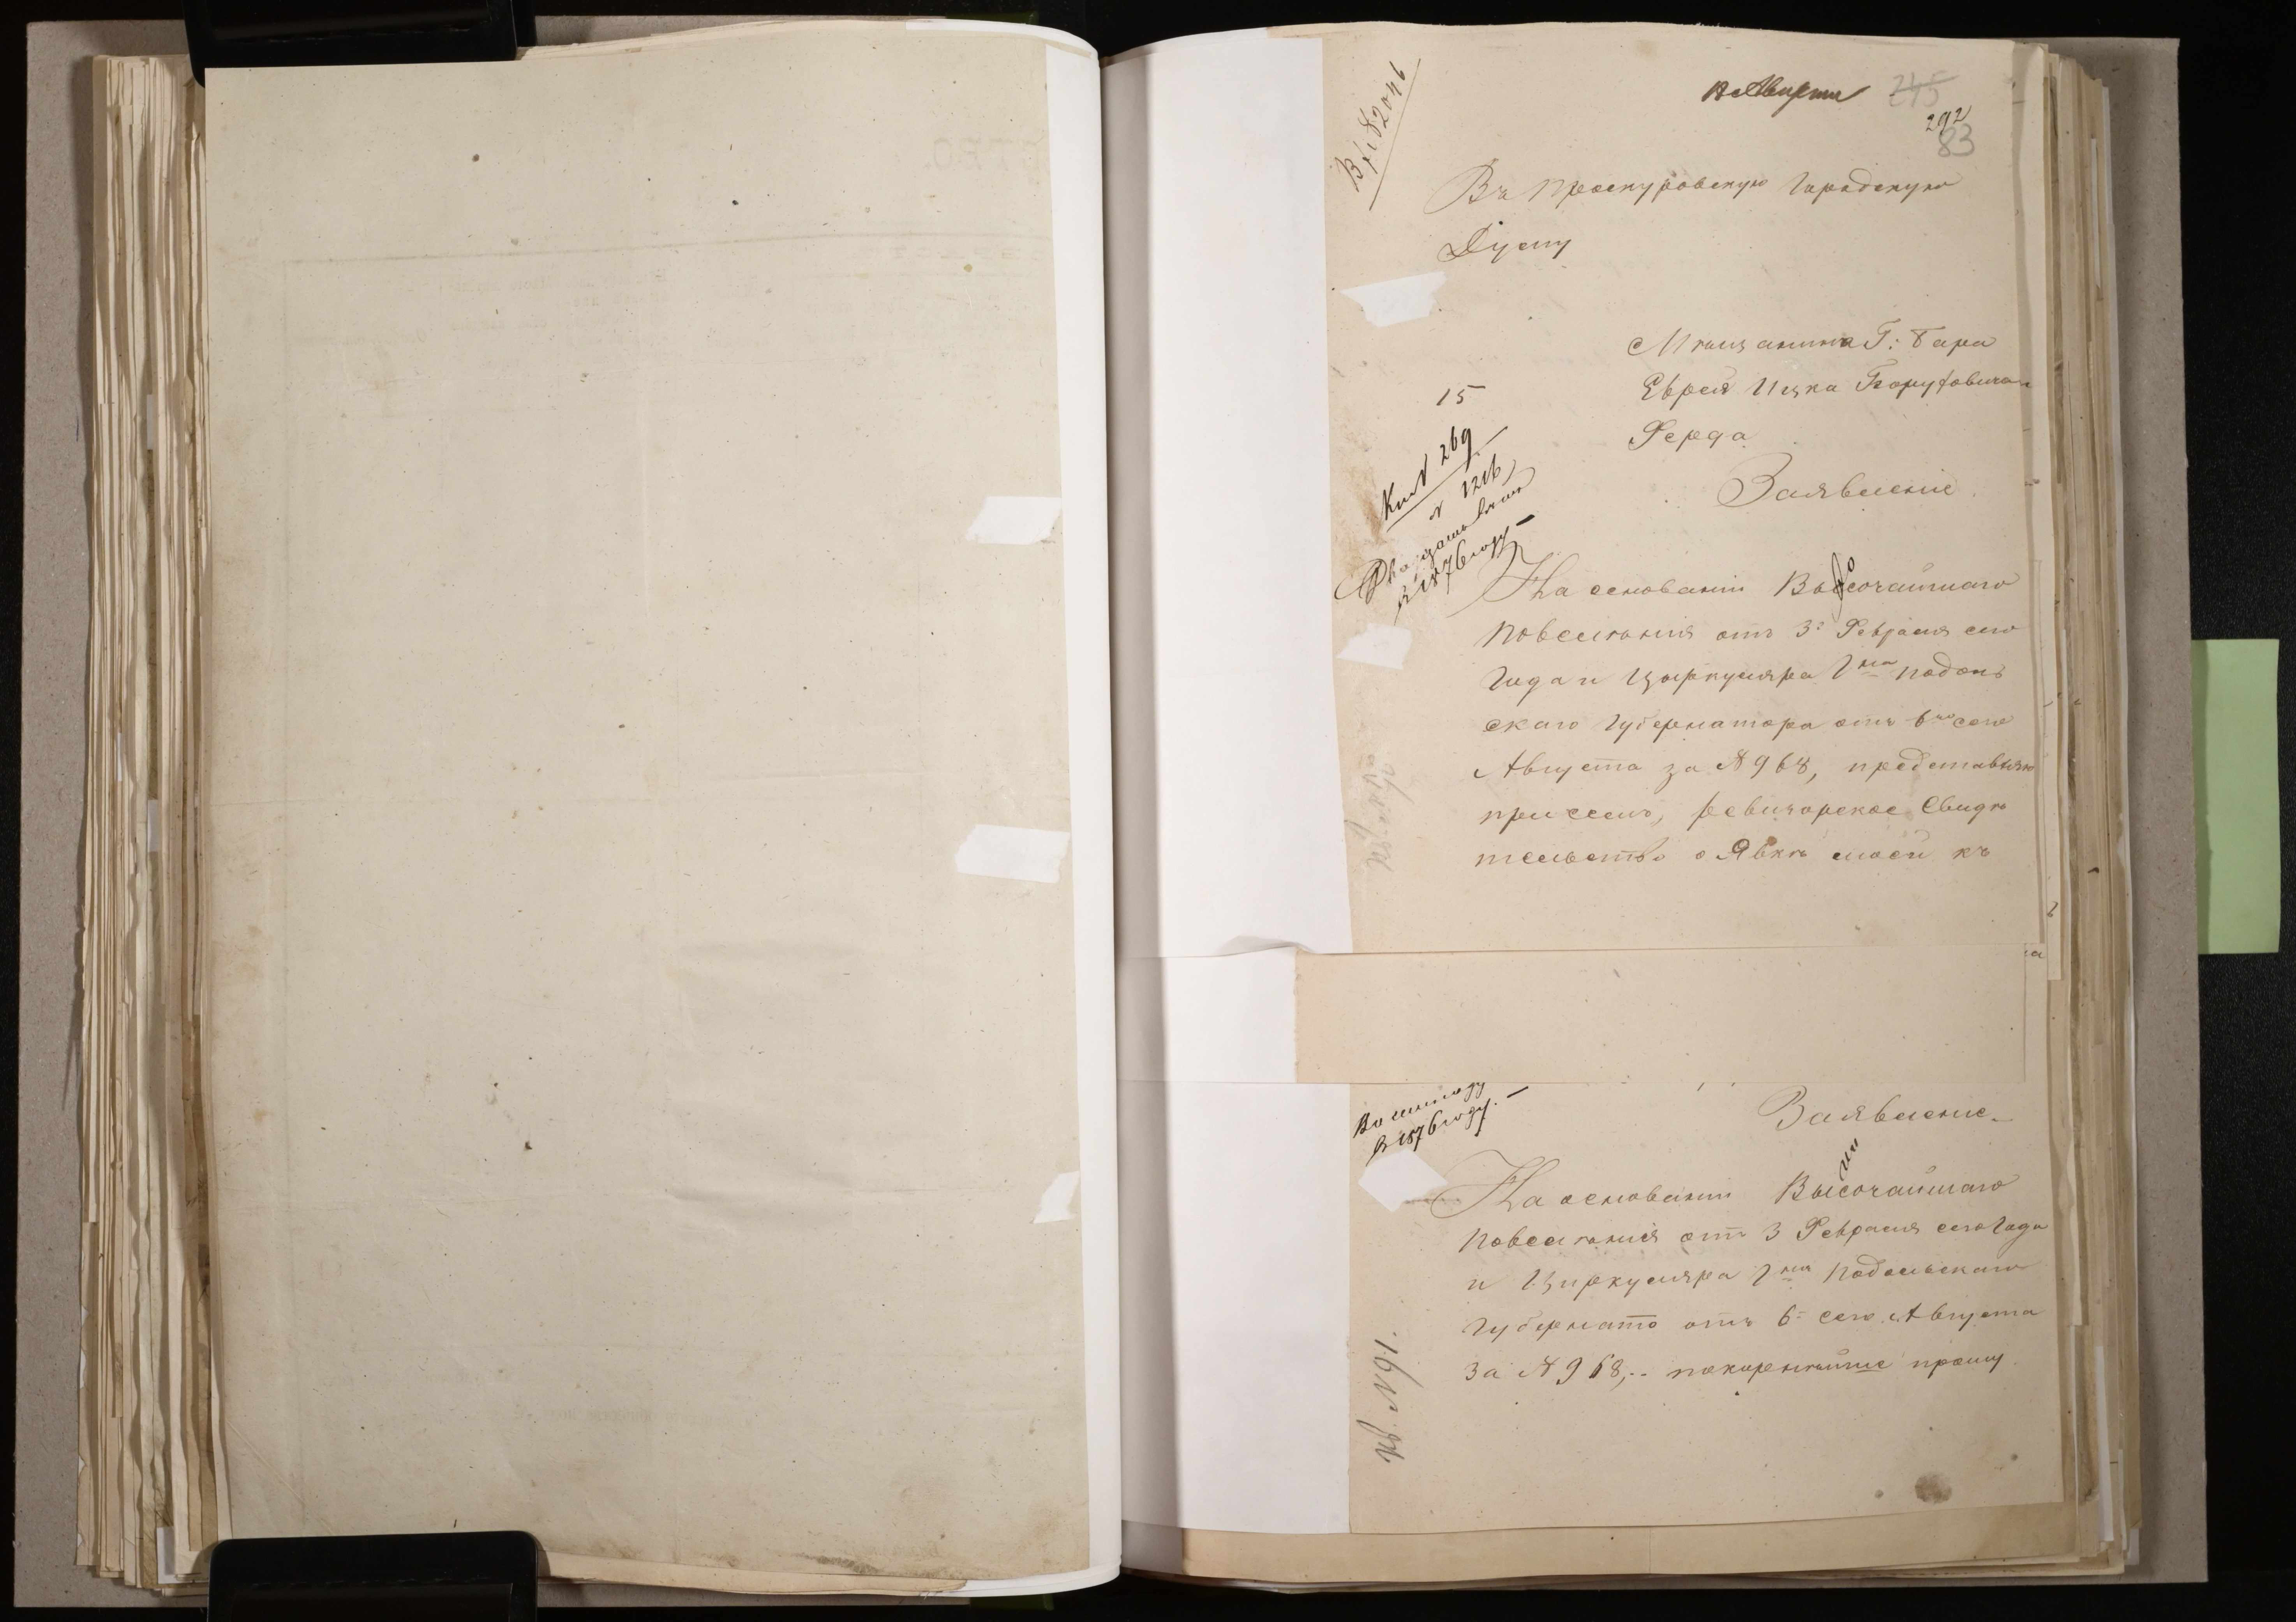 12 Августа 245
292
83
Вх № 2046
Въ Проскуровскую Городскую
Думу
Мѣщанина Г: Бара
Еврея Ицка Борухова
Ферда
Заявленіе
15
Кн № 269
№ 1216
в 1876 году
На основаніи Высочайшаго
Повелѣнія отъ 3го Февраля сего
Года и Циркуляра Гна Подоль
скаго Губернатора отъ 6го сего
Августа за № 968, представляю
при семъ, ревизорское Свидѣ
тельство о Явкѣ моей къ
Заявленіе
в 1876 году.
На основаніи Высочайшаго
Повелѣнія отъ 3 Февраля сего Года
и Циркуляра Гна Подольскаго
Губернато отъ 6 сего Августа
За № 968, покорнѣйше прошу
кв. № 91.